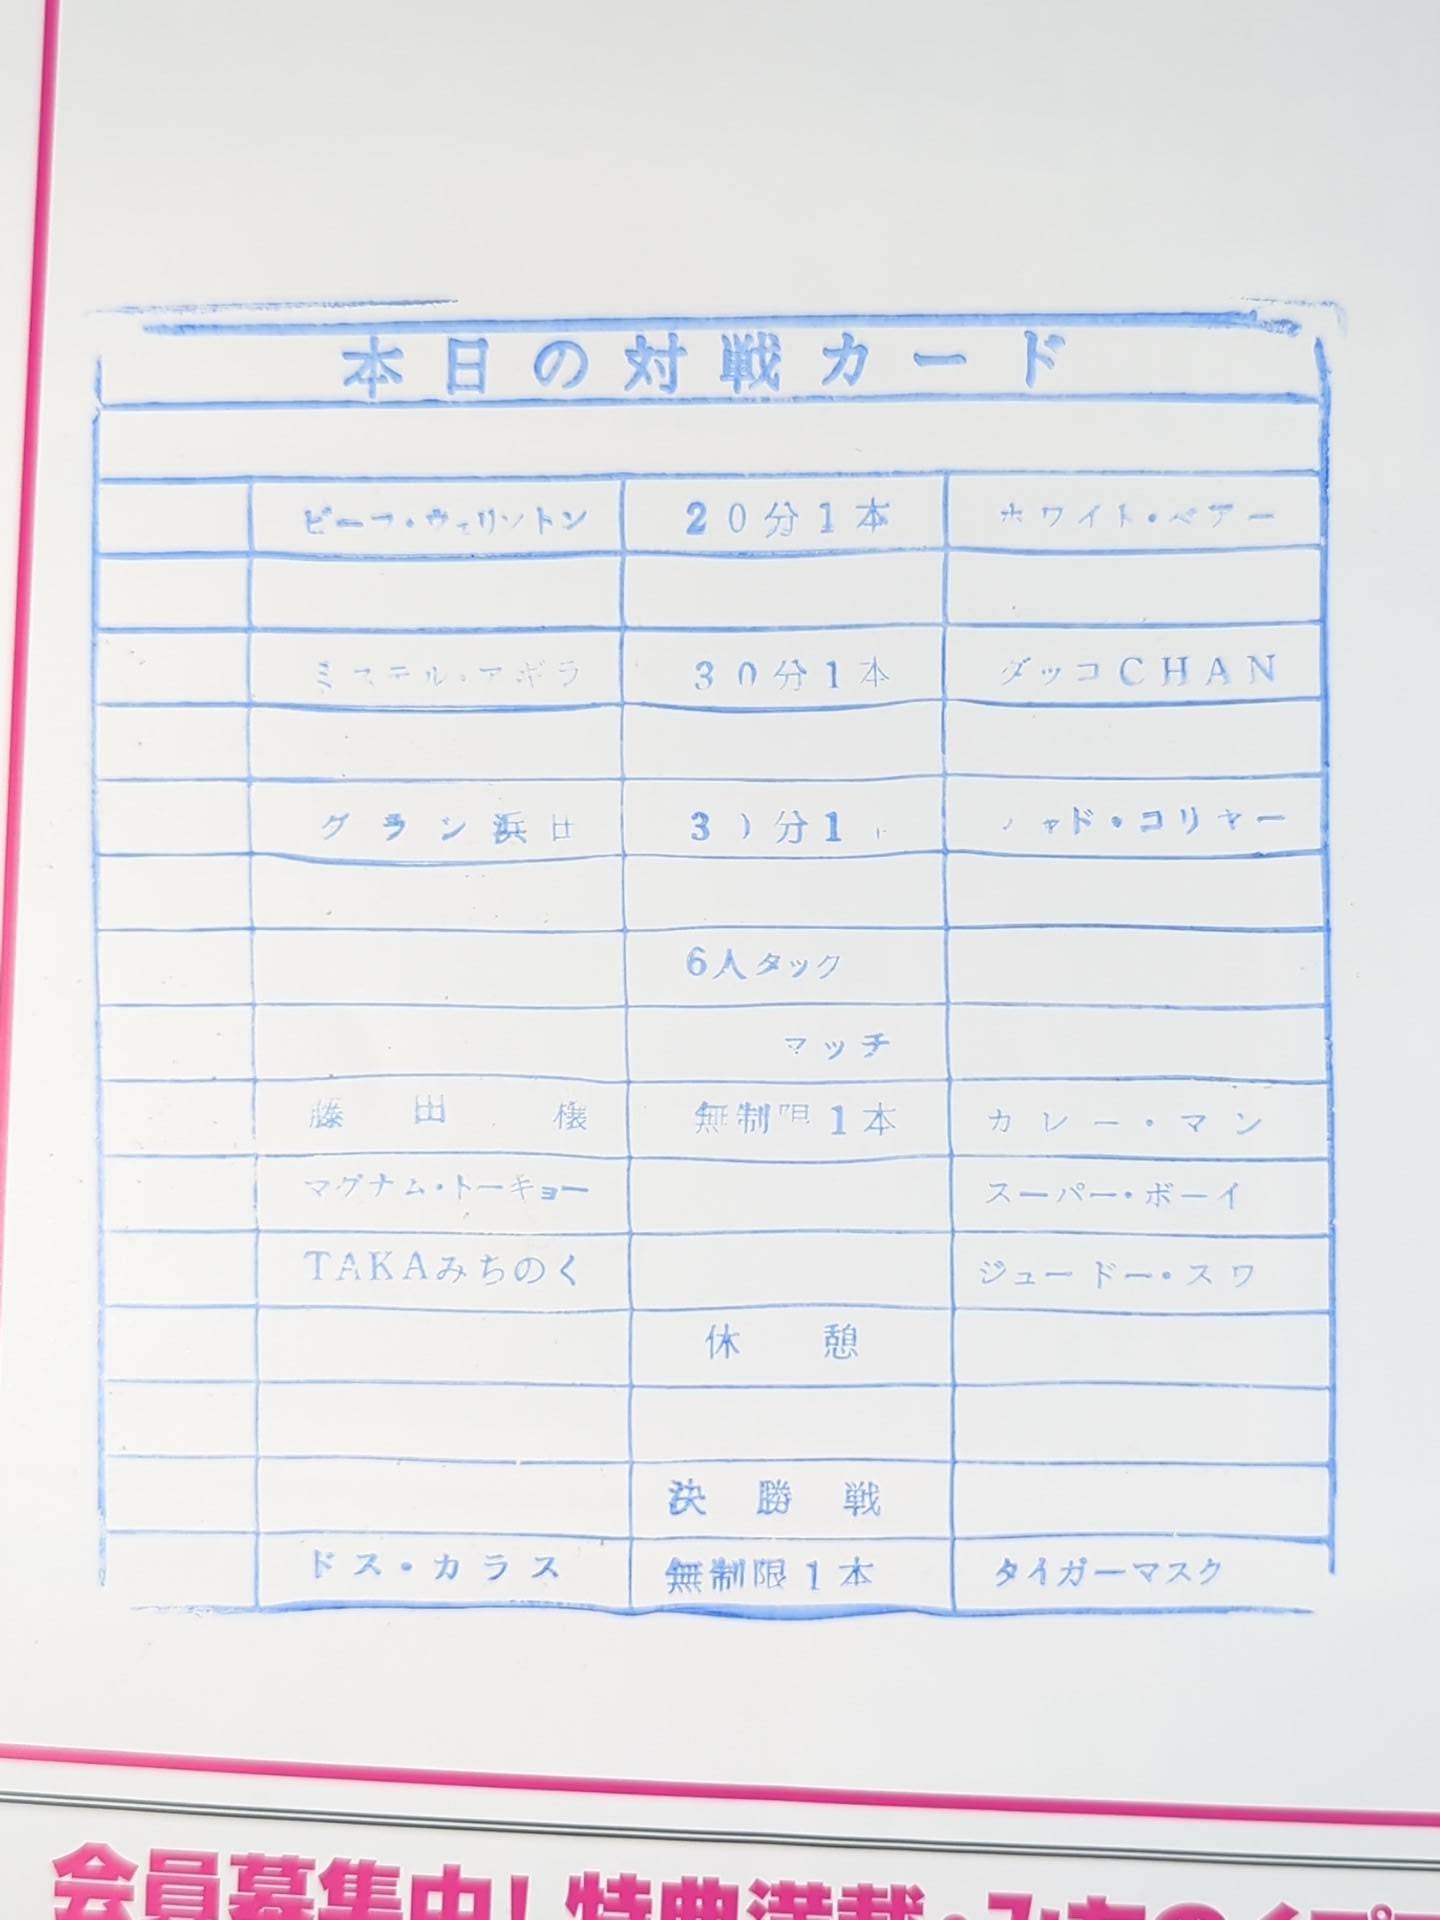 本日の対戦カード
ビーフ・ウェリントン 20分1本 ホワイト・ベアー
ミステル・アギラ 30分1本 ダッコCHAN
グラン浜田 30分1 ド・コリヤー
6人タック
マッチ
藤田 穣 無制限1本 カレー・マン
マグナム・トーキョー スーパー・ボーイ
TAKAみちのく ジュードー・スワ
休憩
決勝戦
ドス・カラス 無制限1本 タイガーマスク
会員募集中！特典満載・みちのくプロ